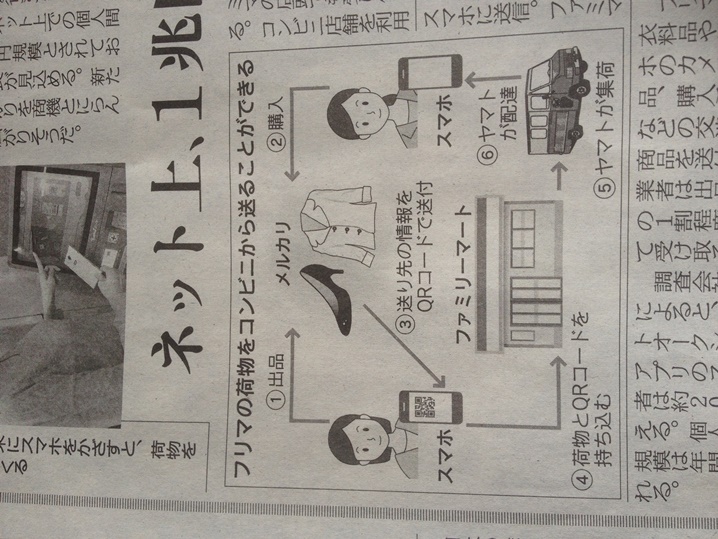 ット上での個人間
円規模とされてお
が見込める。新た
りを商機とにらん
がりそうだ。
ネット上、1兆
末にスマホをかざすと、荷物を
くる
コンビニ店舗を利用
る。
スマホに送信。
ファミマ
フリマの荷物をコンビニから送ることができる
①出品
メルカリ
②購入
スマホ
③送り先の情報を
QRコードで送付
スマホ
ファミリーマート
④荷物とQRコードを
持ち込む
⑤ヤマトが集荷
⑥ヤマト
が配達
衣料品や
ホのカメ
品、購入
などの交
商品を送
業者は出
の1割程
て受け取
調査会社
によると、
トオーク
アプリの
者は約20
える。個人
規模は年間
れる。